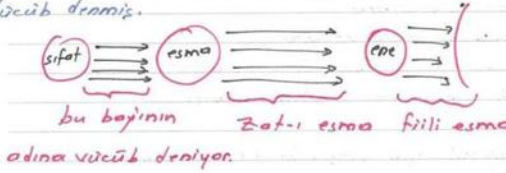 vücûb denmiş.
sıfat esma ene
bu bağının zat-ı esma fiili esma
adına vücûb deniyor.